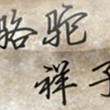 骆驼
祥子